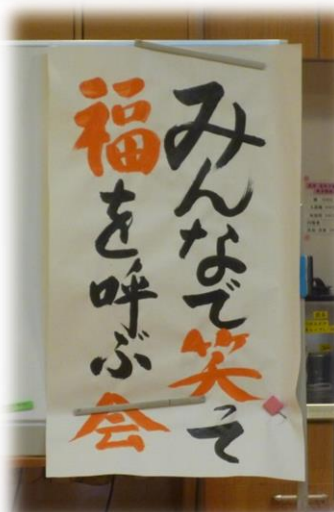 みんなで笑そ
福を呼ぶ会